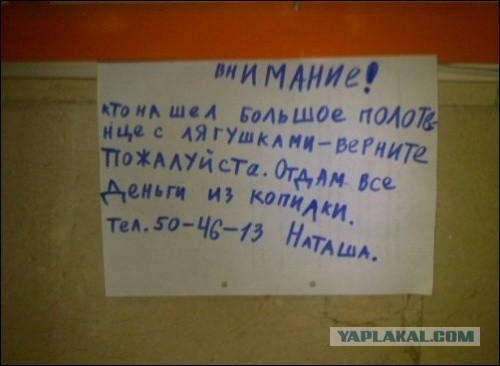 ВНИМАНИЕ!
КТО НА ШЕЛ БОЛЬШОЕ ПОЛОТЕ-
НЦЕ С ЛЯГУШКАМИ – ВЕРНИТЕ
ПОЖАЛУЙСТА. ОТДАМ ВСЕ
ДЕНЬГИ ИЗ КОПИЛКИ.
ТЕЛ. 50-46-13 НАТАША.
YAPLAKAL.COM